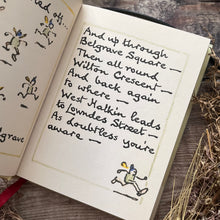 ed off,
elgrave
And up through
Belgrave Square —
Then all round
Wilton Crescent —
And back again
To where —
West Halkin leads
to Lowndes Street —
As doubtless you're
aware —